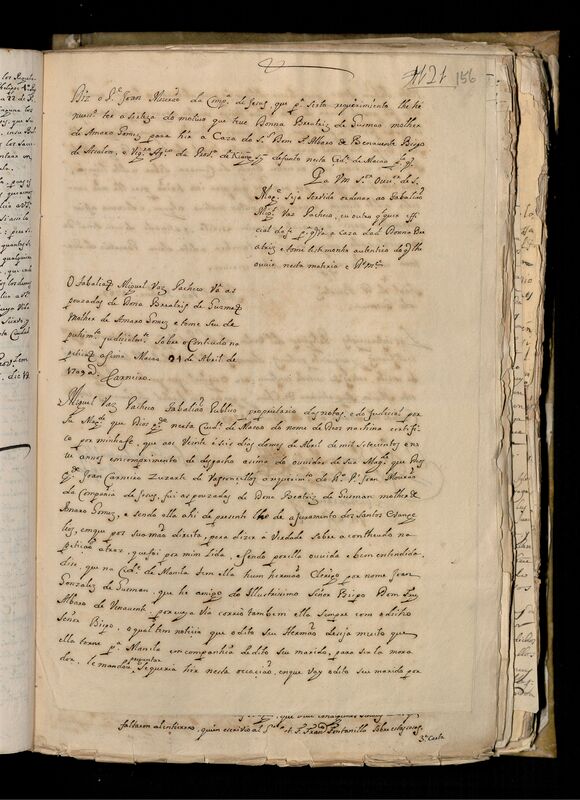 1121 156
Diz o P.e Joan Mourão da Comp.a de Jesus, que p.a serto requerimento lhe he
necess.o ter a serteza do motivo que teve Donna Breatriz de Gusmão molher
de Amaro Gomez para hir a Caza do S.r Dom F. Albaro de Benavente Bispo
de Ascalon, e Vig.ro Ap.co da Prov.a de Kiamsy defunto nesta Cid.e de Macao
P. a Vm S.or Ouv.or de S.
Mag.e seja servido ordenar ao Tabalião
Mig.l Vaz Pacheco, ou outro q.l quer offi
cial de a Caza da d.a Donna Bre
atriz e tome testimonho autentico do q. lhe
ouvir nesta materia e
O Tabalião Miguel Vaz Pacheco Vá as
pouzadas de Dona Breatriz de Guzmão
molher de Amaro Gomez e tome seu de
puhim.to judicial sobre o contiudo na
petição asima Macao 24 de Abril de
1709 Carneiro.
Miguel Vaz Pacheco Tabalião Publico proprietario das notas, e do Judicial por
Sua Mag.de que Deos g.de nesta Cid.e de Macao do nome de Deos na china certifi
co por minha fe, que aos Vinte e seis dias do mes de Abril de mil setecentos e no
ve annos em comprimento do despacho asima do ouvidor de Sua Mag.e que Deos
g.de Joan Carneiro Zuzarte de Vasconcellos a requerim.to do R.do P. Joan Mourão
da Companhia de Jesus, fui as pouzadas de Dona Beatriz de Gusman molher de
Amaro Gomez, e sendo ella ahi de presente lhe dei o juramento dos Santos Evange
lhos, em que pos sua mão direita, para dizer a Verdade sobre o contheudo na
petição atraz, qual foi por mim Lida, e sendo por ella ouvida e bem entendida.
dise, que na Cid.e de Manila tem ella hum hermão Clerigo por nome Joan
Gonzales de Gusman, que he amigo do Illustrissimo Señor Bispo Dom Fray
Albaro de Venavente, por cuja via corrio tambem ella sempre com o ditto
Señor Bispo, o qual tem noticia que o dito seu Hermão deseja muito que
ella torne p.a Manila em companhia do dito seu marido, para ser la mora
dor, le mandou preguntar se queria hir nesta occazião, em que vay o dito seu marido por
faltaron al entierro, quien escrivio al P. Fran.co Fontanilla sobre estas cosas
3.a Carta